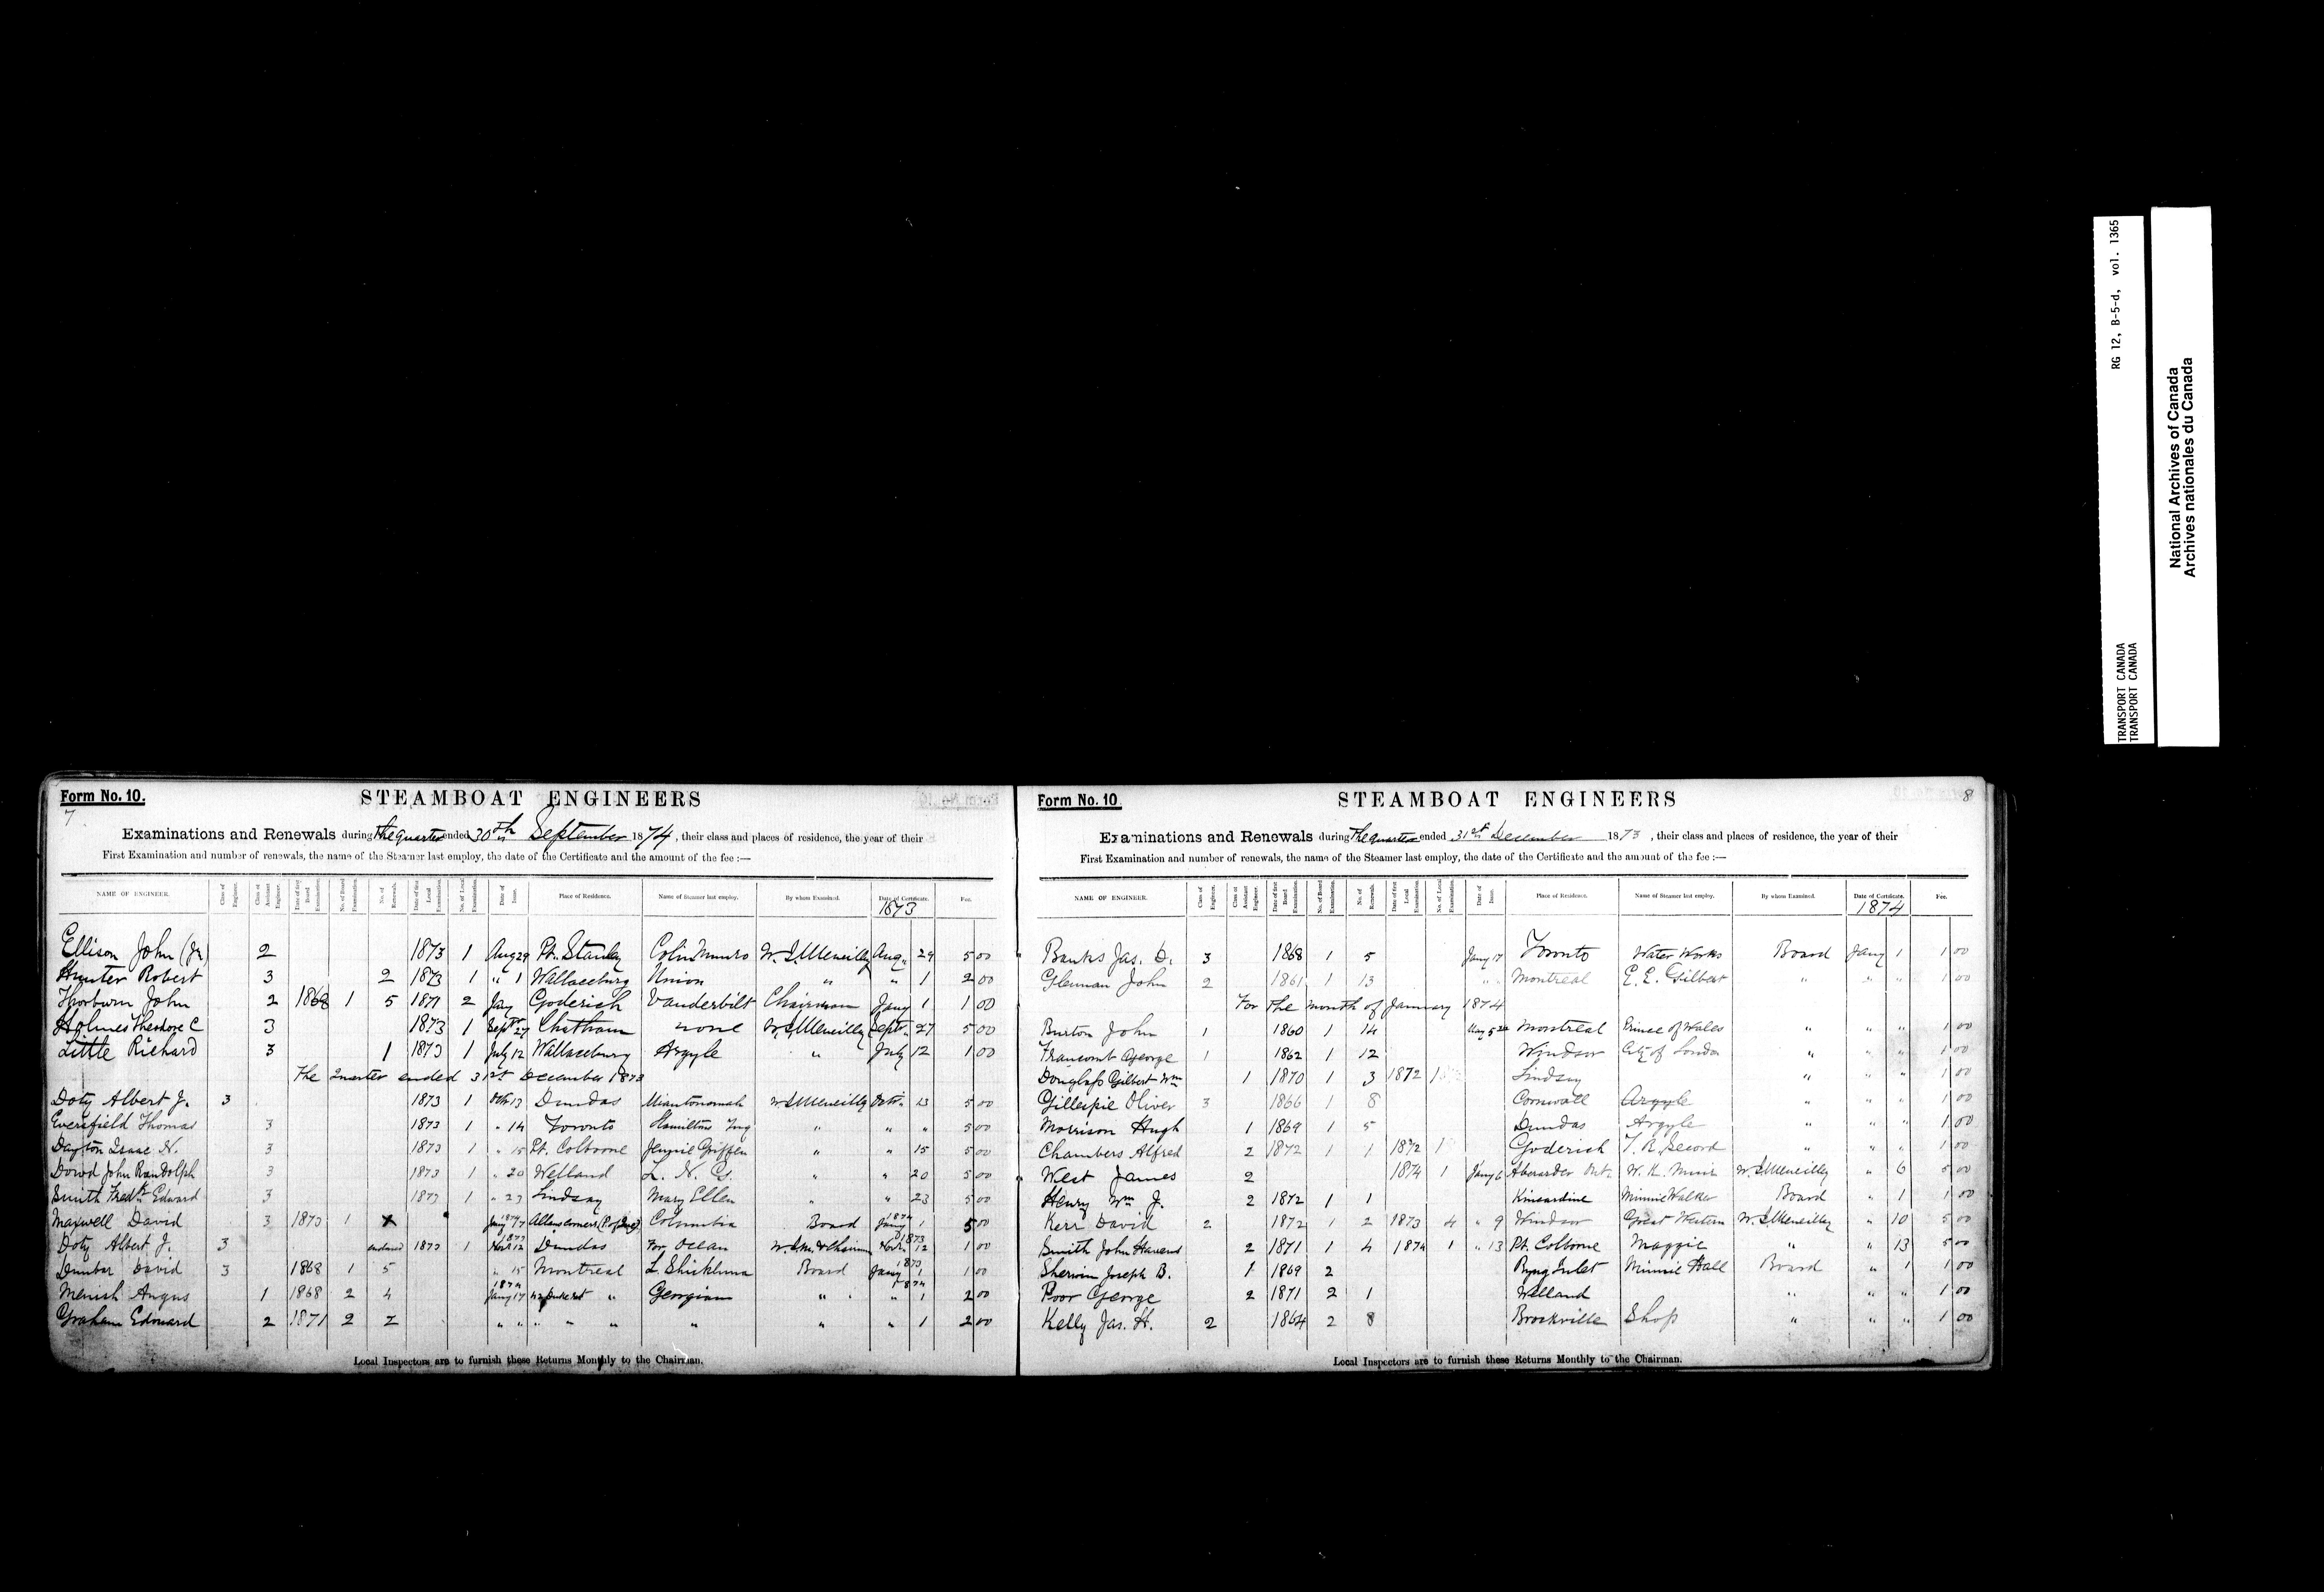 Form No. 10.
7
STEAMBOAT ENGINEERS
Examinations and Renewals during the quarter ended 30th September 1874, their class and places of residence, the year of their
First Examination and number of renewals, the name of the Steamer last employ, the date of the Certificate and the amount of the fee :—
NAME OF ENGINEER. Class of Engineer. Class of Assistant Engineer. Date of first Board Examination. No. of Board Examination. No. of Renewals. Date of first Local Examination. No. of Local Examination. Date of Issue. Place of Residence. Name of Steamer last employ. By whom Examined. Date of Certificate. Fee.
1873
Ellison John (Jr) 2 1873 1 Aug 29 Pt. Stanley Colin Munro W. J. Meneilly Aug. 29 5 00
Hunter Robert 3 2 1873 1 " 1 Wallaceburg Union " " 1 2 00
Thorburn John 2 1868 1 5 1871 2 Jany Goderich Vanderbilt Chairman Jany 1 1 00
Holmes Theodore C 3 1873 1 Sept 27 Chatham none W. J. Meneilly Sept. 27 5 00
Little Richard 3 1 1873 1 July 12 Wallaceburg Argyle " July 12 1 00
The Quarter ended 31st December 1873
Doty Albert J. 3 1873 1 Oct 13 Dundas Miantonomah W. J. Meneilly Octr. 13 5 00
Eversfield Thomas 3 1873 1 " 14 Toronto Hamilton Tug " " " 5 00
Dayton Isaac N. 3 1873 1 " 15 Pt. Colborne Jennie Griffen " " 15 5 00
Dowd John Randolph 3 1873 1 " 20 Welland L. N. G. " " 20 5 00
Smith Fredk Edward 3 1873 1 " 23 Lindsay Mary Ellen " " 23 5 00
Maxwell David 3 1873 1 X 1874 Jany 7 Allens corners (P. of Que) Columbia Board 1874 Jany 1 5 00
Doty Albert J. 3 endorsed 1873 1 1873 Novr 12 Dundas For Ocean W. J. M. & Chairman 1873 Novr. 12 1 00
Dunbar David 3 1868 1 5 " 15 Montreal L. Shickluna Board 1873 Jany 1 1 00
Menish Angus 1 1868 2 4 1874 Jany 17 " Georgian " 1874 " 1 2 00
Graham Edward 2 1871 2 2 " " " " " " " " 1 2 00
Local Inspectors are to furnish these Returns Monthly to the Chairman.
Form No. 10
8
STEAMBOAT ENGINEERS
Examinations and Renewals during the quarter ended 31st December 1873, their class and places of residence, the year of their
First Examination and number of renewals, the name of the Steamer last employ, the date of the Certificate and the amount of the fee :—
NAME OF ENGINEER. Class of Engineer. Class of Assistant Engineer. Date of first Board Examination. No. of Board Examination. No. of Renewals. Date of first Local Examination. No. of Local Examination. Date of Issue. Place of Residence. Name of Steamer last employ. By whom Examined. Date of Certificate. Fee.
1874
Banks Jas. D. 3 1868 1 5 Jany 17 Toronto Water Works Board Jany 1 1 00
Glennan John 2 1861 1 13 " " Montreal E. E. Gilbert " " " 1 00
For the month of January 1874
Burton John 1 1860 1 14 May 5 Montreal Prince of Wales " " " 1 00
Francomb George 1 1862 1 12 Windsor City of London " " " 1 00
Douglass Gilbert Wm 1 1870 1 3 1872 1 Lindsay " " " 1 00
Gillespie Oliver 3 1866 1 8 Cornwall Argyle " " " 1 00
Morrison Hugh 1 1869 1 5 Dundas Argyle " " " 1 00
Chambers Alfred 2 1872 1 1 1872 1 Goderich T. R. Secord " " " 1 00
West James 2 1874 1 Jany 6 Aberarder Ont. W. K. Muir W. J. Meneilly " 6 5 00
Henry Wm J. 2 1872 1 1 Kincardine Minnie Walker Board " 1 1 00
Kerr David 2 1872 1 2 1873 4 " 9 Windsor Great Western W. J. Meneilly " 10 5 00
Smith John Havens 2 1871 1 4 1874 1 " 13 Pt. Colborne Maggie " " 13 5 00
Sherwin Joseph B. 1 1869 2 Byng Inlet Minnie Hall Board " 1 1 00
Poor George 2 1871 2 1 Welland " " " 1 00
Kelly Jas. H. 2 1864 2 8 Brockville Shop " " " 1 00
Local Inspectors are to furnish these Returns Monthly to the Chairman.
RG 12, B-5-d, vol. 1365
TRANSPORT CANADA
TRANSPORT CANADA
National Archives of Canada
Archives nationales du Canada